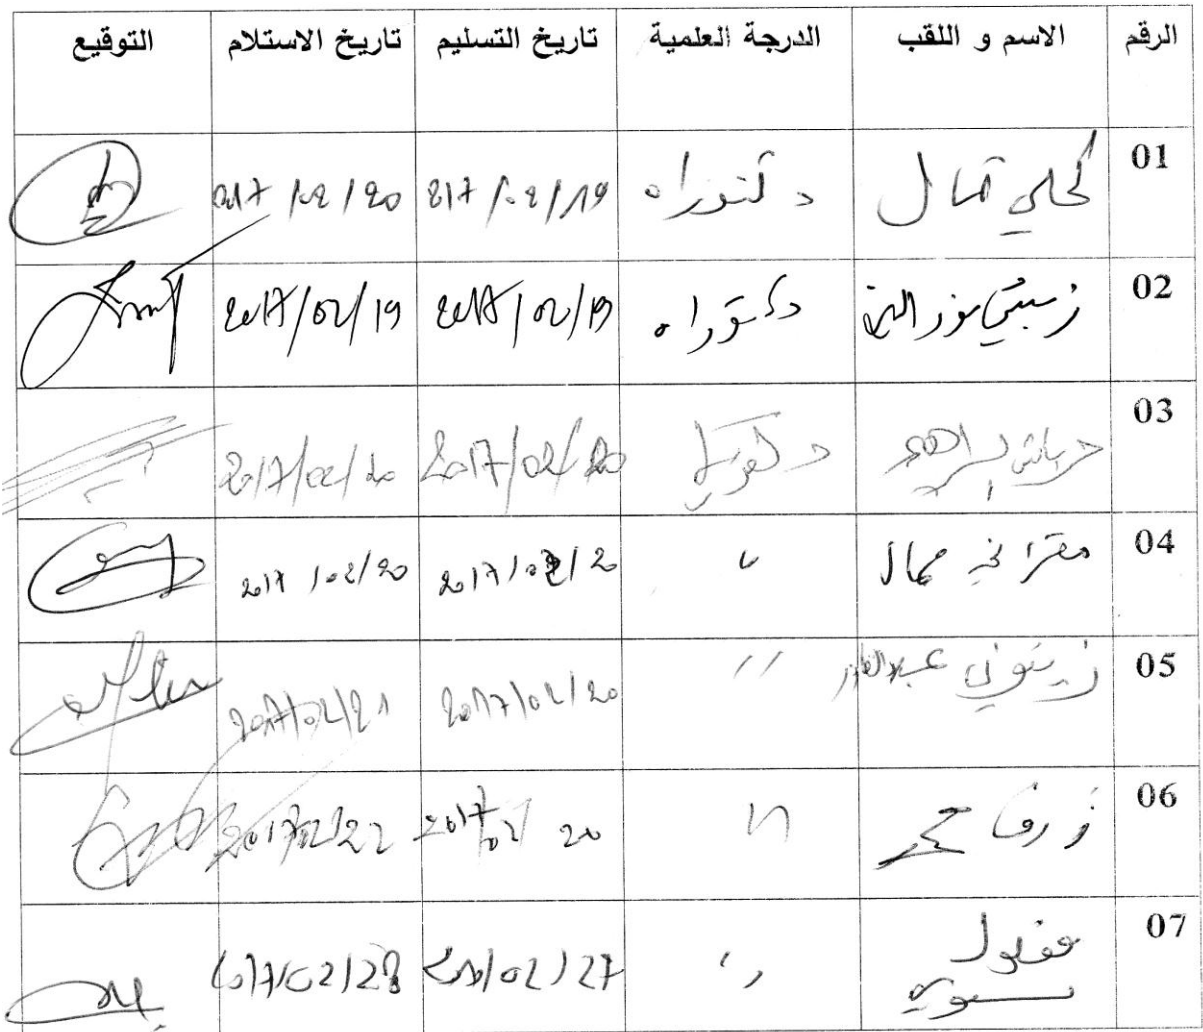 الرقم الاسم و اللقب الدرجة العلمية تاريخ التسليم تاريخ الاستلام التوقيع
01 كحلي كمال دكتوراه 2017/02/19 2017/02/20
02 زبيتي نور الدين دكتوراه 2017/02/19 2017/02/19
03 2017/02/20 2017/02/20
04 مقراني جمال " 2017/02/20 2017/02/20
05 زيتوني عبد القادر " 2017/02/20 2017/02/21
06 " 2017/02/20 2017/02/22
07 " 02/27 2017/02/28